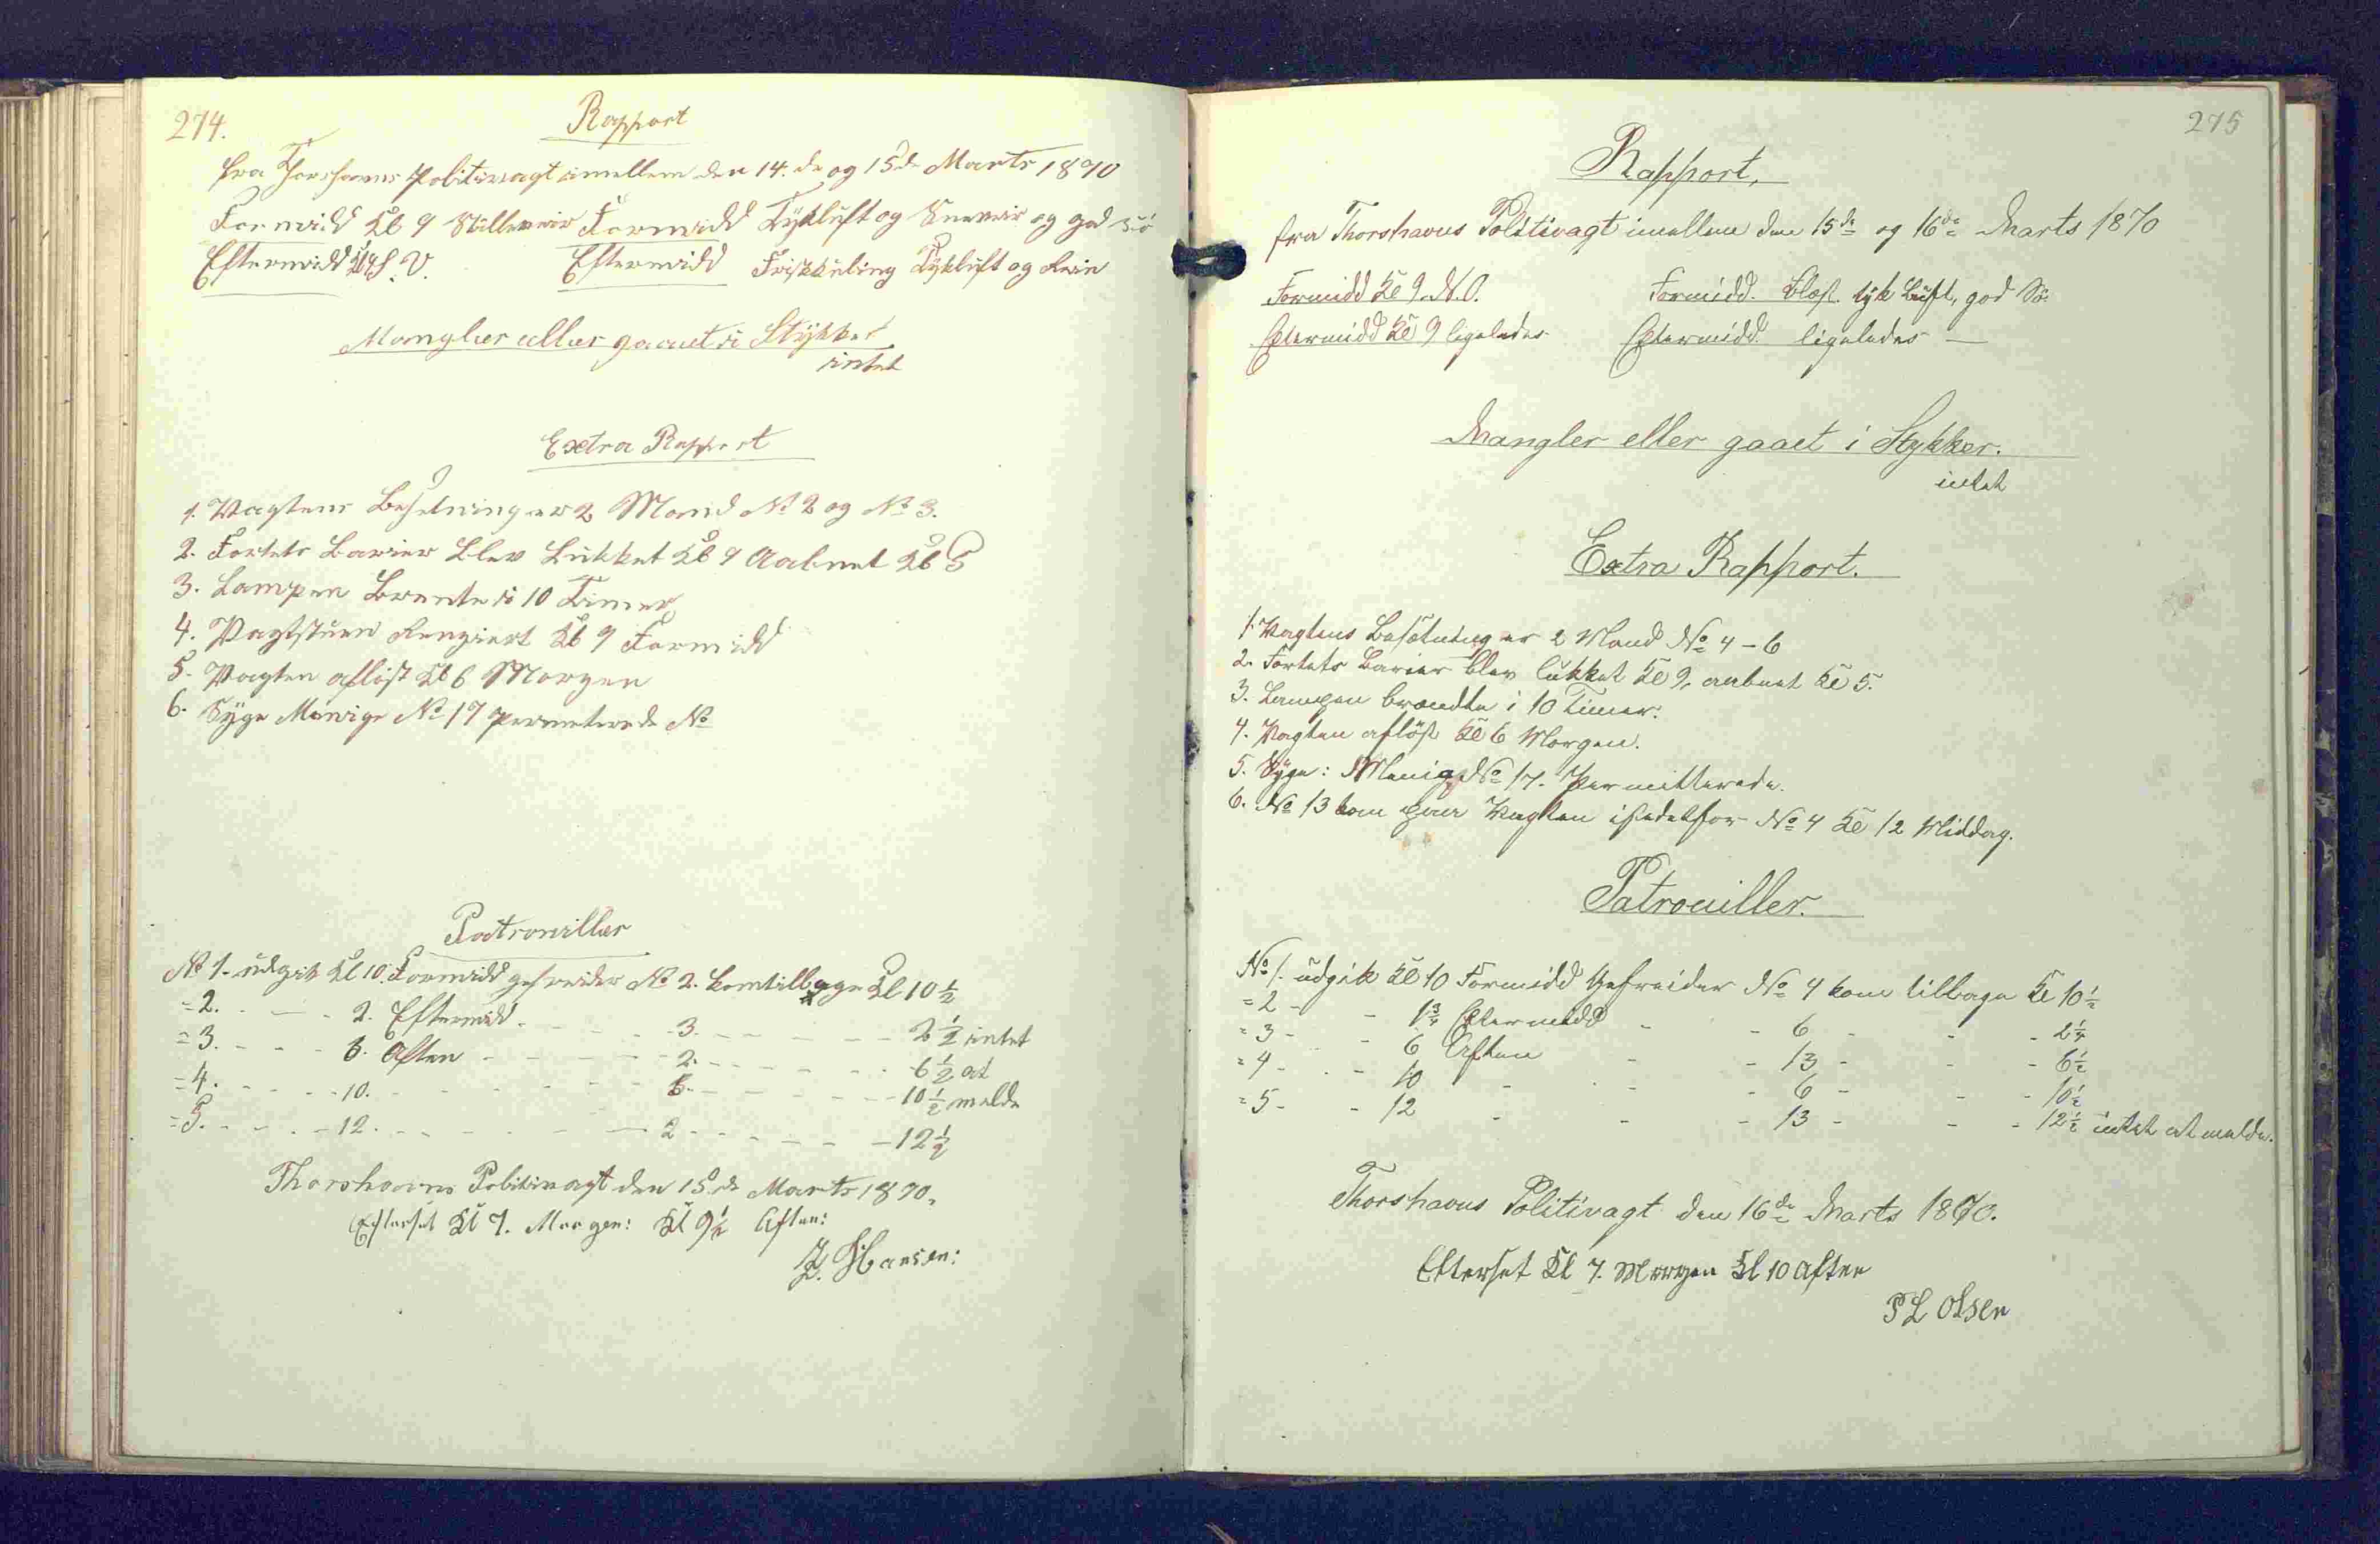 274.
Rapport
fra Thorshavns Politivagt imellem den 14.de og 15de Marts 1870
Formidd Kl 9 Stille Formidd Tykluft og og god Sö
Eftermidd Kl 9 S. V. Eftermidd Friskkuling Tykluft og Rein
Mangler eller gaaet i Stykker
intet
Extra Rapport
1. Vagtens Besetning er 2 Mand No 2 og No 3.
2. Fortets Barier Blev Lukket Kl 9 Aabnet Kl 5
3. Lampen Brente i 10 Timer
4. Vagtstuen Rengiort Kl 9 Formidd
5. Vagten aflöst Kl 6 Morgen
6. Syge Menige No 17 permeterede No
Patrouiller
No 1. udgik Kl 10. Formidd gefreider No 2. kom tilbage Kl 10 1/2
=2. - - - 2. Eftermidd. - - - 3. - - - 2 1/2 intet
=3. - - - 6. Aften - - - 2. - - - 6 1/2 at
=4. - - - 10. - - - 3. - - - 10 1/2 melde
=5. - - - 12. - - - 2 - - - 12 1/2
Thorshavns Politivagt den 15de Marts 1870.
Efterset Kl 7. Morgen: Kl 9 1/2 Aften:
Hansen:
275
Rapport,
fra Thorshavns Politivagt imellem den 15de og 16de Marts 1870
Formidd Kl 9. N.O. Formidd. Blæst tyk Luft, god Sö.
Eftermidd Kl 9 ligeledes Eftermidd. ligeledes —
Mangler eller gaaet i Stykker.
intet
Extra Rapport.
1. Vagtens Besætning er 2 Mand No 4 - 6
2. Fortets Barier blev lukket Kl 9, aabnet Kl 5.
3. Lampen brændte i 10 Timer.
4. Vagten aflöst Kl 6 Morgen.
5. Syge: Menig No 17. Permitterede.
6. No 13 kom paa Vagten istedetfor No 4 Kl 12 Middag.
Patrouiller.
No 1. udgik Kl 10 Formidd Gefreider No 4 kom tilbage Kl 10 1/2
=2 - - 1 3/4 Eftermidd - - 6 - - - 2 1/4
=3 - - 6 Aften - - 13 - - - 6 1/2
=4 - - 10 - - - 6 - - - 10 1/2
=5 - - 12 - - - 13 - - - 12 1/2 intet at melde.
Thorshavns Politivagt den 16de Marts 1870.
Efterset Kl 7. Morgen Kl 10 Aften
P L Olsen